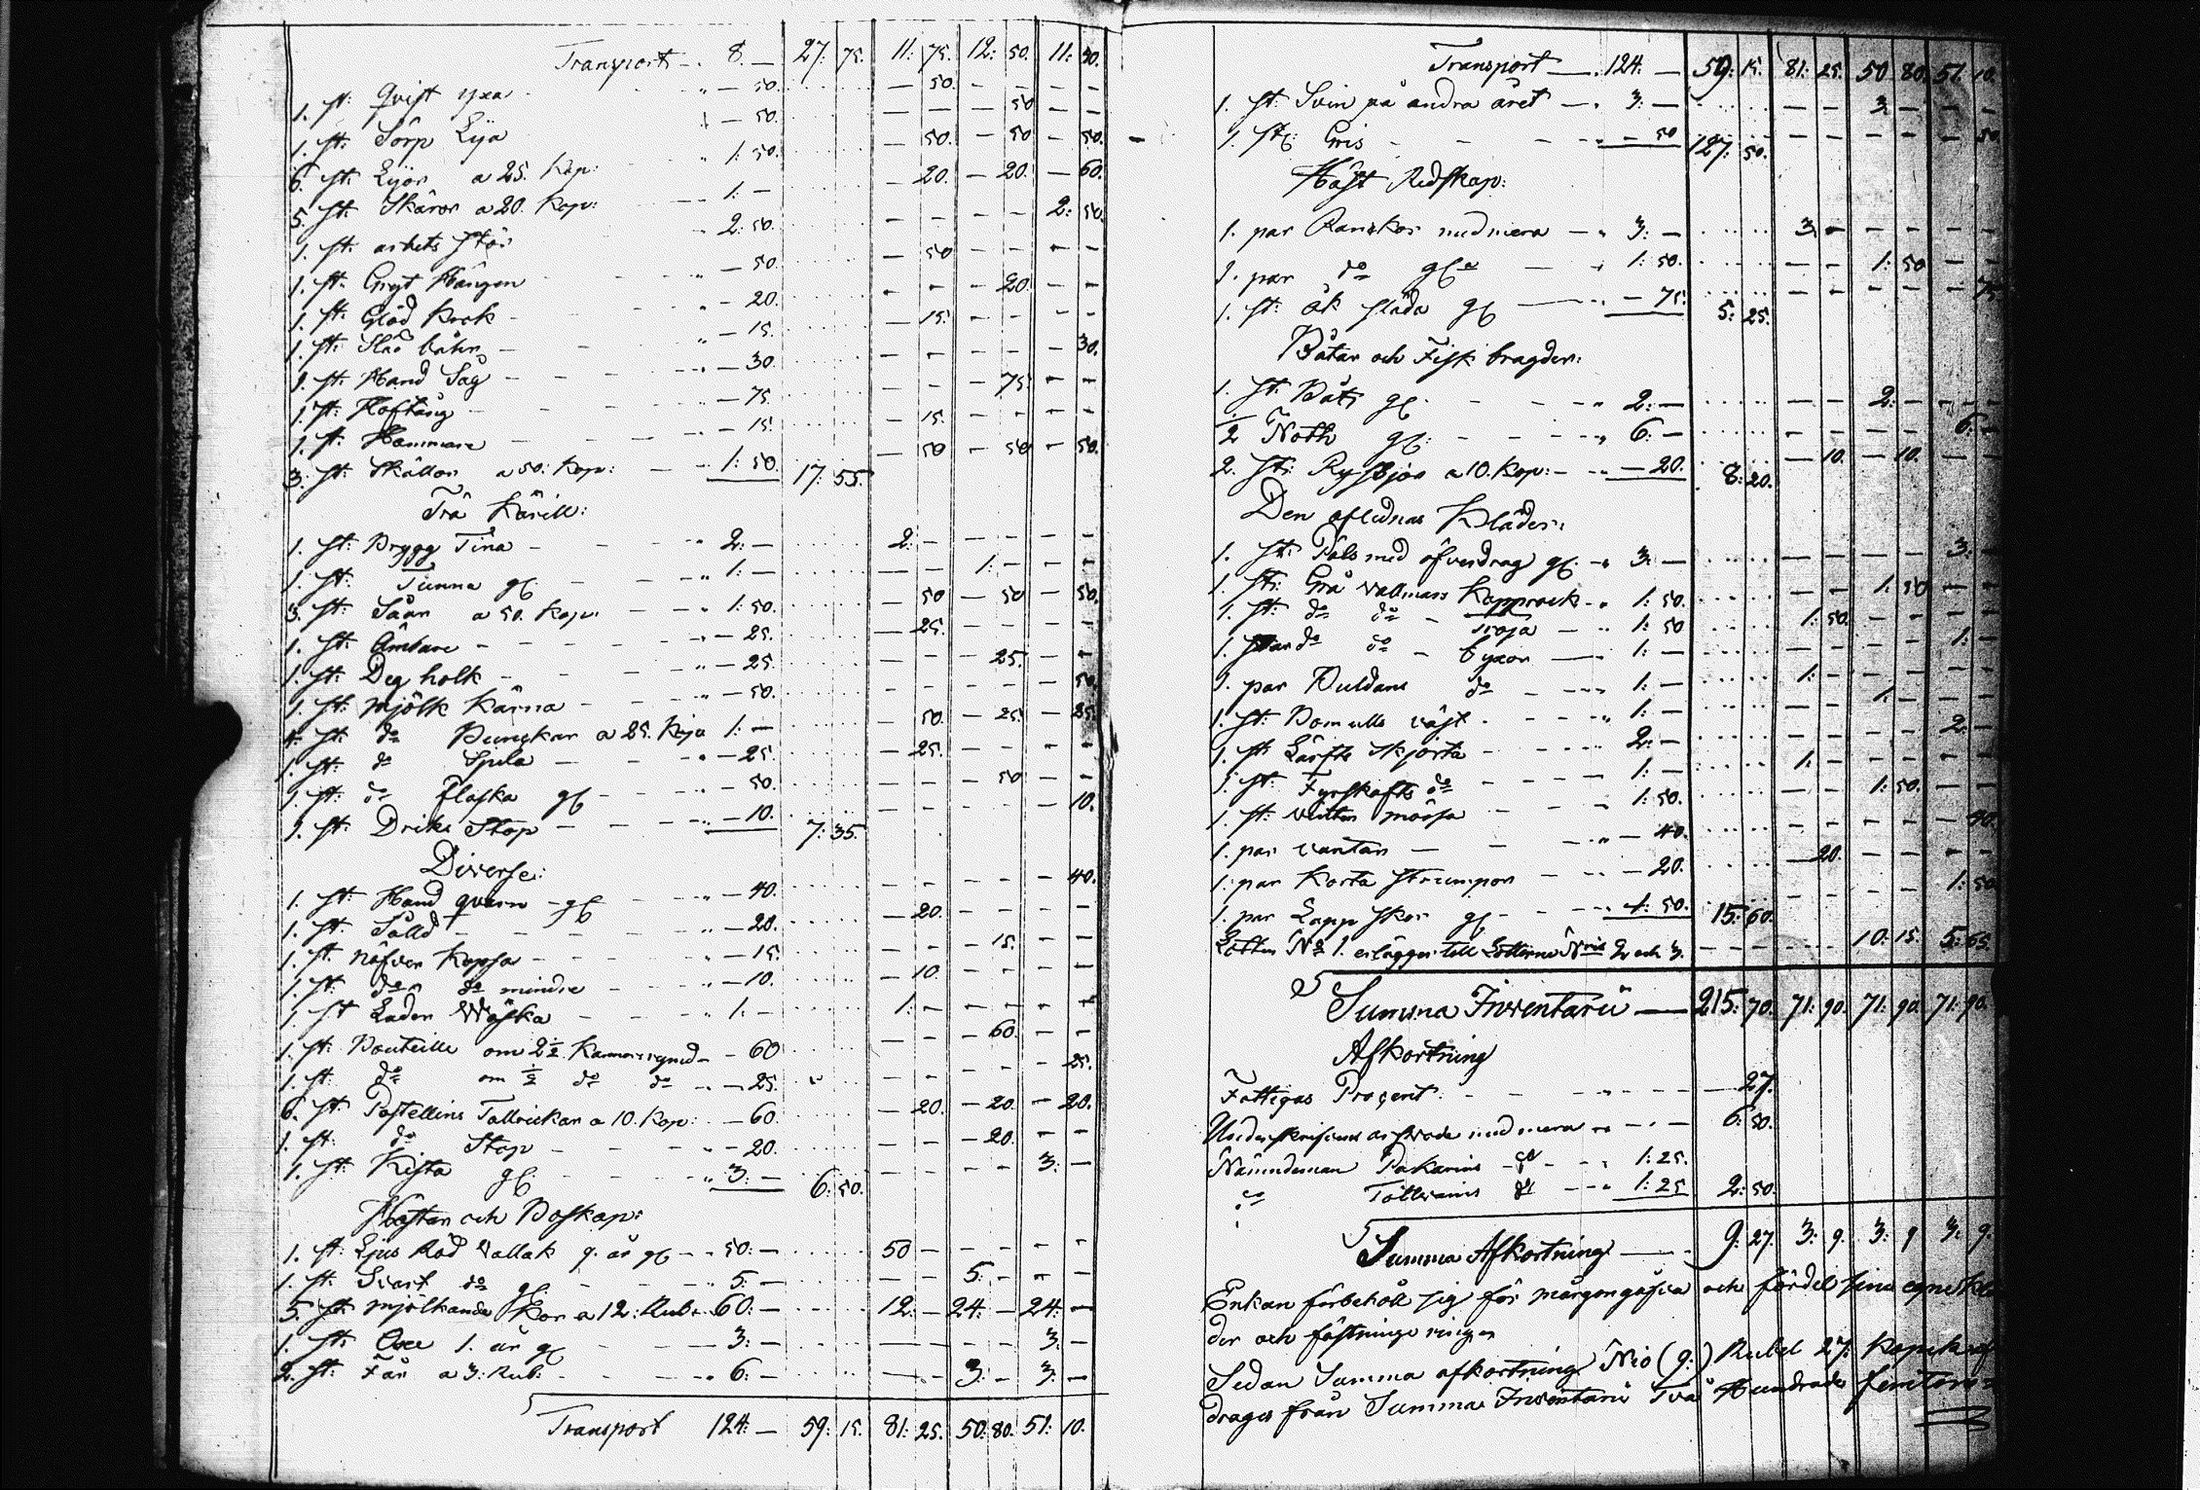 Transport - 8. — 27: 75. 11: 75. 12: 50. 11: 50.
1. st: Qvist yxa - - 50. - 50. - - - -
1. st: Sörp Lya - 50. - - - 50 - -
6. st: Lyor a 25. Kop: 1: 50. - 50. - 50 - 50.
5. st: Skäror a 20. Kop: 1: - - 20. - 20. - 60.
1. st: arbets stör 2: 50. - - - - 2: 50.
1. st: Gryt Hängen - 50. - 50 - - - -
1. st: Glöd Krok - 20. - - - 20. - -
1. st: - 15. - 15. - - - -
1. st: Hand Såg - 30. - - - - - 30.
1. st: Hoftång - 75. - - - 75 - -
1. st: Hammare - 15. - 15. - - - -
3. st: Skällor a 50. Kop: 1: 50. 17: 55. - 50 - 50 - 50.
Trä Kärill:
1. st: Brygg Tina - 2: - 2: - - - - -
1. st: Tunna gl. - 1: - - - 1: - - -
3. st: Såar a 50. Kop: 1: 50. - 50 - 50 - 50.
1. st: Ämbare - - 25. - 25. - - - -
1. st: Deg holk - - 25. - - - 25. - -
1. st: Mjölk Kärna - - 50. - - - - - 50.
4. st: do Bunckar a 25. Kop 1: - - 50. - 25. - 25.
1. st: do Spila - - 25. - 25. - - - -
1. st: do flaska gl - 50. - - - 50 - -
1. st: Dricks Stop - - 10. 7: 35. - - - - - 10.
Diverse:
1. st: Hand qvarn - gl - - 40. - - - - - 40.
1. st: Såld - - 20. - 20. - - - -
1. st: näfver Kopsa - - 15. - - - 15. - -
1. st: do do mindre - - 10. - 10. - - - -
1. st Läder Wäska - 1: - 1: - - - - -
1. st: Bouteille om 2½ Kannor - 60 - - - 60. - -
1. st: do om ½ do do - 25. - - - - - 25.
6. st: Postellins Tallrickar a 10. Kop: - 60. - 20. - 20. - 20.
1. st: do Stop - - 20. - - - 20. - -
1. st: Kista gl: 3: - 6: 50. - - - - 3: -
Hästar och Boskap:
1. st: Ljus Röd Vallak 9. år gl - 50: - 50 - - - - -
1. st: Svart do gl. - 5: - - - 5: - - -
5. st: mjölkande Kor a 12: Rub: 60: - 12: - 24: - 24: -
1. st: Oxe 1. år gl - 3: - - - - - 3: -
2. st: Får a 3: Rub: - 6: - - - 3: - 3: -
Transport 124: - 59: 15. 81: 25. 50: 80. 51: 10.
Transport - 124: - 59: 15. 81: 25. 50 80. 51: 10.
1. st: Svin på andra året - 3: - - - 3: - - -
1. st: Gris - - 50 127: 50. - - - - - 50
Häst Redskap:
1. par Rankor med mera - 3: - 3: - - - - -
1. par do gla - 1: 50. - - 1: 50 - -
1. st: åk släda gl - 75. 5: 25. - - - - - 75
Båtar och Fisk bragder:
1. st: Båt gl. - 2: - - - 2: - - -
½ Noth gl: - 6: - - - - - 6: -
2. st: Rysjor a 10. Kop: - - 20. 8: 20. - 10. - 10. - -
Den aflidnas Kläder:
1. st: Päls med öfverdrag gl. - 3: - - - - - 3: -
1. st: Grå vallmars Kapprock - 1: 50. - - 1: 50 - -
1. st: do do - tröja - 1: 50 1: 50. - - - -
1. par do do - byxor - 1: - - - - - 1: -
1. par Buldans do - 1: - 1: - - - - -
1. st: Bomulls väst - 1: - - - 1: - - -
1. st: Lärfts skjorta - 2: - - - - - 2: -
1. st: Fyrskafts do - 1: - 1: - - - - -
1. st: vinter mössa - 1: 50. - - 1: 50. - -
1. par vantar - - 40. - - - - - 40.
1. par Korta strumpor - - 20. - 20. - - - -
1. par Lapp skor gl - 1: 50. 15: 60. - - - - 1: 50
Lotten No 1. erlägger till Lotterne Nris 2 och 3. - 10: 15. 5: 65.
Summa Inventarii — 215: 70. 71: 90. 71: 90. 71: 90.
Afkortning
Fattigas Procent: - - 27.
Underskrifvens arfvode med mera - 6: 50.
Nämndeman Pakarins - 1: 25.
do 1: 25 2: 50.
Summa Afkortning — 9: 27. 3: 9. 3: 9 3: 9.
Enkan förbehöll sig för morgongåfva och fördel sina egne klä
der och fästninge ringen
Sedan Summa afkortning Nio (9:) Rubel 27. Kopek af
drages från Summa Inventarii Två Hundrade femton